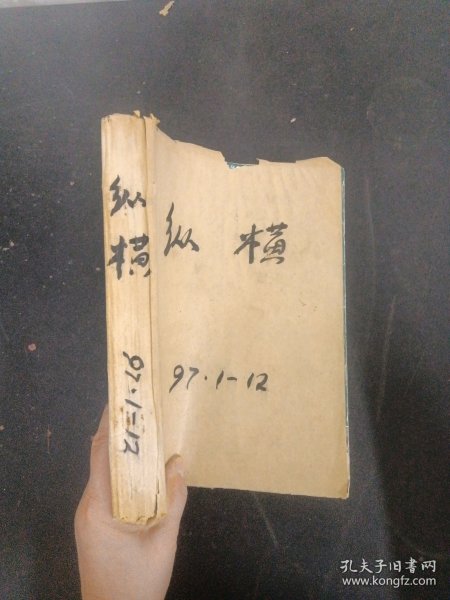 纵
横
97·1-12
纵 横
97·1-12
孔夫子旧书网
www.kongfz.com